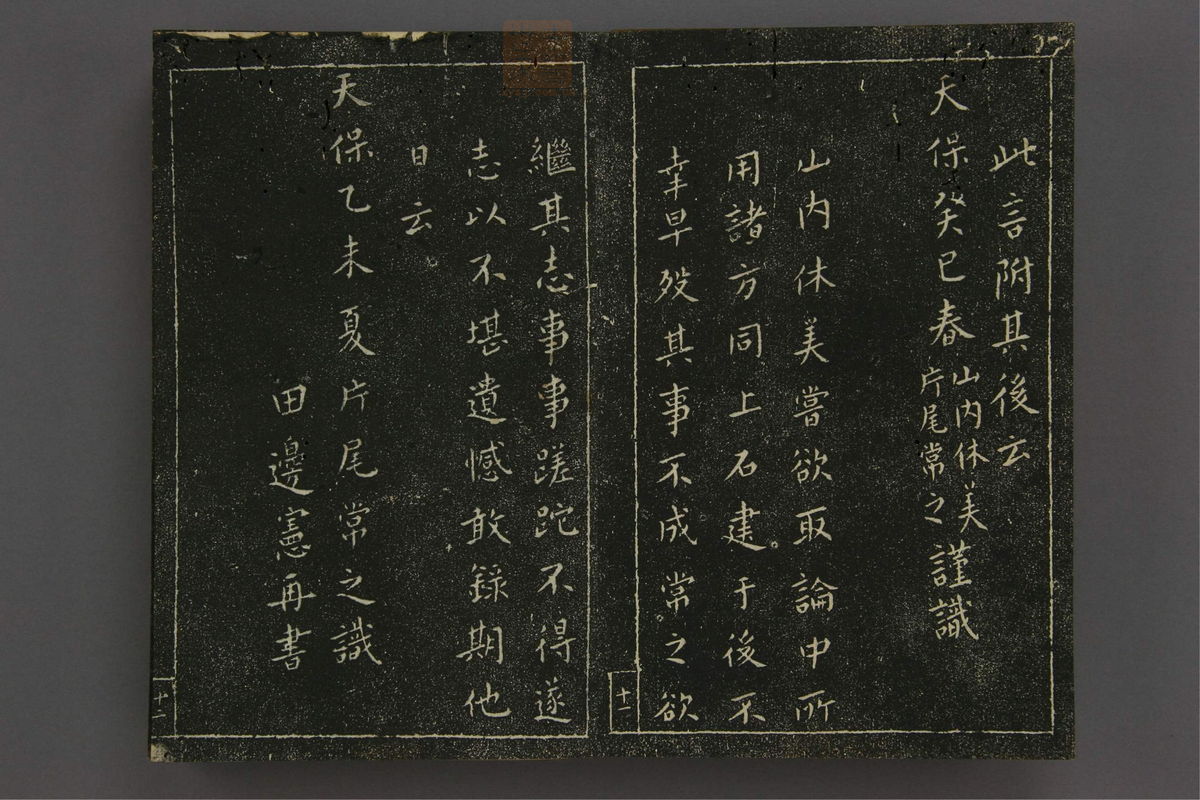 此言附其後云
天保癸巳春山内休美片尾常之謹識
山内休美嘗欲取論中所
用諸方同上石建于後不
幸早歿其事不成常之欲
十一
繼其志事事蹉跎不得遂
志以不堪遺憾敢錄期他
日云
天保乙未夏片尾常之識
田邊憲再書
十一